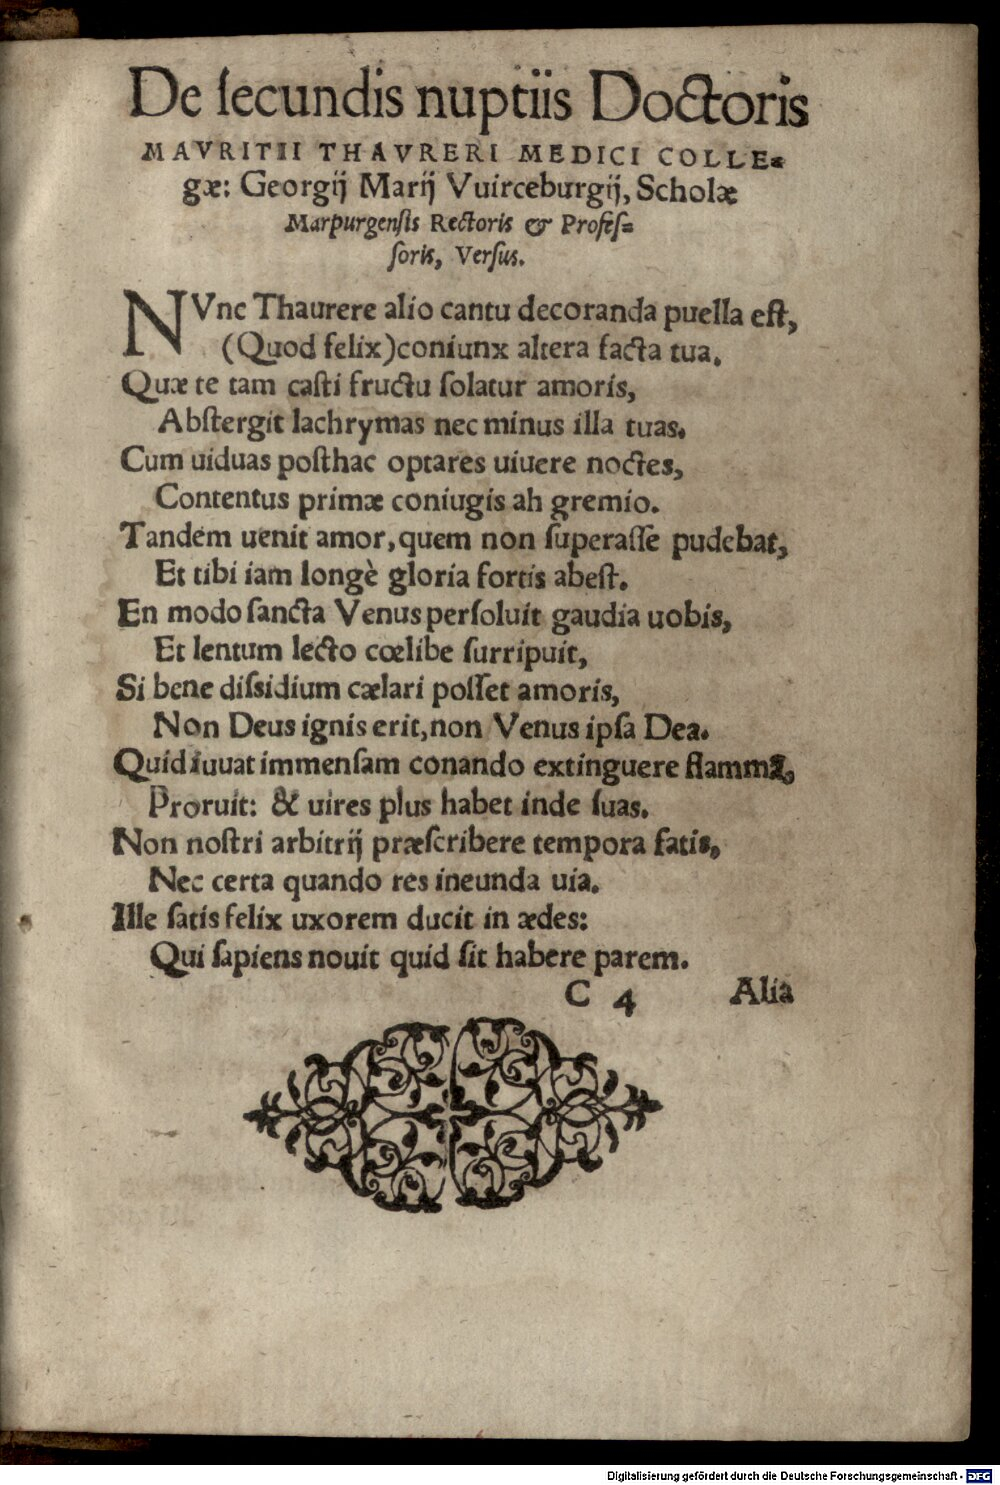 De ſecundis nuptiis Doctoris
MAVRITII THAVRERI MEDICI COLLE=
gæ: Georgij Marij Vuirceburgij, Scholæ
Marpurgenſis Rectoris & Profeſ=
ſoris, Verſus.
NVnc Thaurere alio cantu decoranda puella eſt,
(Quod felix) coniunx altera facta tua.
Quæ te tam caſti fructu ſolatur amoris,
Abſtergit lachrymas nec minus illa tuas.
Cum uiduas poſthac optares uiuere noctes,
Contentus primæ coniugis ah gremio.
Tandem uenit amor, quem non ſuperaſſe pudebat,
Et tibi iam longè gloria fortis abeſt.
En modo ſancta Venus perſoluit gaudia uobis,
Et lentum lecto cœlibe ſurripuit,
Si bene diſsidium cælari poſſet amoris,
Non Deus ignis erit, non Venus ipſa Dea.
Quid iuuat immenſam conando extinguere flammã,
Proruit: & uires plus habet inde ſuas.
Non noſtri arbitrij præſcribere tempora fatis,
Nec certa quando res ineunda uia.
Ille ſatis felix uxorem ducit in ædes:
Qui ſapiens nouit quid ſit habere parem.
C 4 Alia
Digitalisierung gefördert durch die Deutsche Forschungsgemeinschaft - DFG